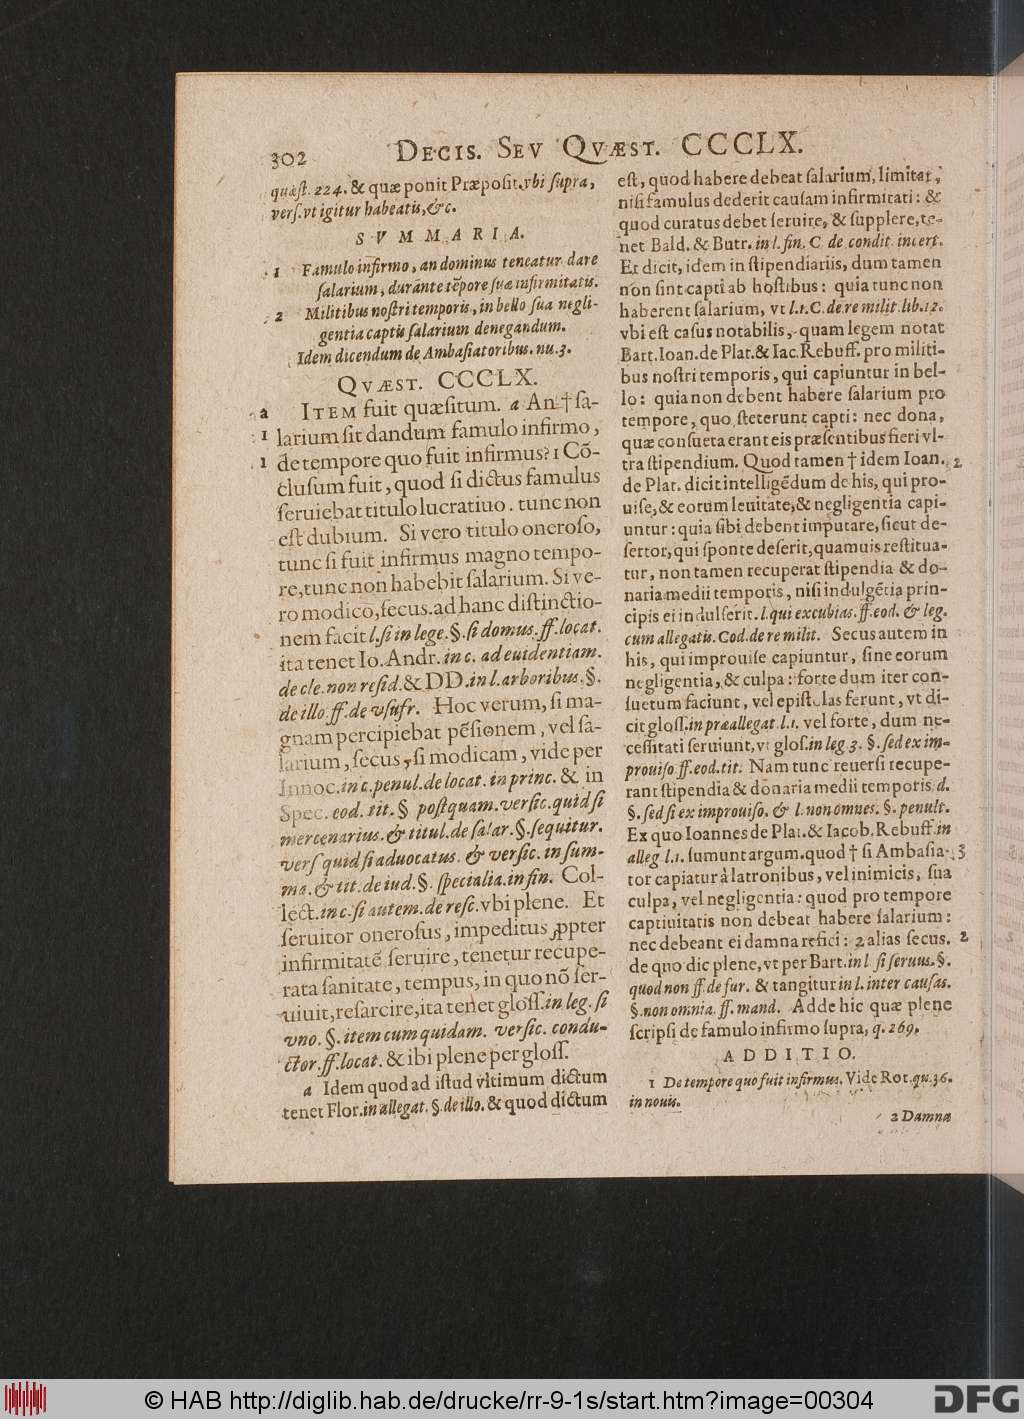 302 DECIS. SEV QVÆST. CCCLX.
quæst. 224. & quæ ponit Præposit. vbi supra,
vers. vt igitur habeatis, &c.
SVMMARIA.
1 Famulo infirmo, an dominus teneatur dare
salarium, durante tēpore suæ infirmitatis.
2 Militibus nostri temporis, in bello sua negli-
gentia captis salarium denegandum.
Idem dicendum de Ambasiatoribus. nu. 3.
QVÆST. CCCLX.
a ITEM fuit quæsitum. a An † sa-
1 larium sit dandum famulo infirmo,
1 de tempore quo fuit infirmus? 1 Cō-
clusum fuit, quod si dictus famulus
seruiebat titulo lucratiuo. tunc non
est dubium. Si vero titulo oneroso,
tunc si fuit infirmus magno tempo-
re, tunc non habebit salarium. Si ve-
ro modico, secus. ad hanc distinctio-
nem facit l. si in lege. §. si domus. ff. locat.
ita tenet Io. Andr. in c. ad euidentiam.
de cle. non resid. & DD. in l. arboribus. §.
de illo. ff. de vsufr. Hoc verum, si ma-
gnam percipiebat pēsionem, vel sa-
larium, secus, si modicam, vide per
Innoc. in c. penul. de locat. in princ. & in
Spec. eod. tit. § postquam. versic. quid si
mercenarius. & titul. de salar. §. sequitur.
vers quid si aduocatus. & versic. in sum-
ma. & tit. de iud. §. specialia. in fin. Col-
lect. in c. si autem. de resc. vbi plene. Et
seruitor onerosus, impeditus ꝓpter
infirmitatē seruire, tenetur recupe-
rata sanitate, tempus, in quo nō ser-
uiuit, resarcire, ita tenet gloss. in leg. si
vno. §. item cum quidam. versic. condu-
ctor. ff. locat. & ibi plene per gloss.
a Idem quod ad istud vltimum dictum
tenet Flor. in allegat. §. de illo. & quod dictum
est, quod habere debeat salarium, limitat,
nisi famulus dederit causam infirmitati: &
quod curatus debet seruire, & supplere, te-
net Bald. & Butr. in l. fin. C de condit incert.
Et dicit, idem in stipendiariis, dum tamen
non sint capti ab hostibus: quia tunc non
haberent salarium, vt l. 1. C. de re milit. lib. 12.
vbi est casus notabilis, quam legem notat
Bart. Ioan. de Plat. & Iac. Rebuff. pro militi-
bus nostri temporis, qui capiuntur in bel-
lo: quia non debent habere salarium pro
tempore, quo steterunt capti: nec dona,
quæ consueta erant eis præsentibus fieri vl-
tra stipendium. Quod tamen † idem Ioan. 2
de Plat. dicit intelligēdum de his, qui pro-
uise, & eorum leuitate, & negligentia capi-
untur: quia sibi debent imputare, sicut de-
sertor, qui sponte deserit, quamuis restitua-
tur, non tamen recuperat stipendia & do-
naria medii temporis, nisi indulgētia prin-
cipis ei indulserit. l. qui excubias. ff. eod. & leg.
cum allegatis. Cod. de re milit. Secus autem in
his, qui improuise capiuntur, sine eorum
negligentia, & culpa: forte dum iter con-
suetum faciunt, vel epistolas ferunt, vt di-
cit gloss. in præallegat. l. 1. vel forte, dum ne-
cessitati seruiunt, vt glos. in leg 3. §. sed ex im-
prouiso ff. eod. tit. Nam tunc reuersi recupe-
rant stipendia & donaria medii temporis. d.
§. sed si ex improuiso. & l. non omnes. §. penult.
Ex quo Ioannes de Plat. & Iacob. Rebuff. in
alleg l. 1. sumunt argum. quod † si Ambasia- 3
tor capiatur à latronibus, vel inimicis, sua
culpa, vel negligentia: quod pro tempore
captiuitatis non debeat habere salarium:
nec debeant ei damna refici: 2 alias secus. 2
de quo dic plene, vt per Bart. in l si seruus. §.
quod non ff. de fur. & tangitur in l. inter causas.
§. non omnia. ff. mand. Adde hic quæ plene
scripsi de famulo infirmo supra, q. 269.
ADDITIO.
1 De tempore quo fuit infirmus. Vide Rot. qu. 36.
in nouis.
2 Damna
© HAB http://diglib.hab.de/drucke/rr-9-1s/start.htm?image=00304
DFG